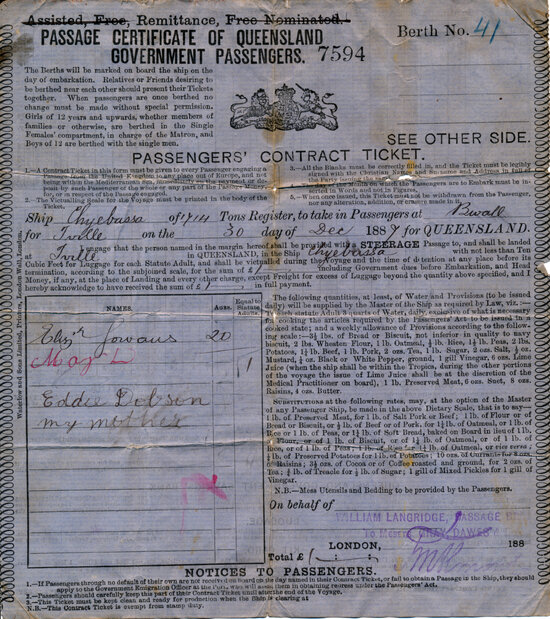 Assisted, Free, Remittance, Free Nominated.
PASSAGE CERTIFICATE OF QUEENSLAND
GOVERNMENT PASSENGERS. 7594
Berth No. 41
The Berths will be marked on board the ship on
day of embarkation. Relatives or Friends desiring
to be berthed near each other should present their Tickets
together. When passengers are once berthed no
change must be made without special permission.
Girls of 12 years and upwards, whether members of
families or otherwise, are berthed in the Single
Females' compartment, in charge of the Matron, and
Boys of 12 are berthed with the single men.
SEE OTHER SIDE.
PASSENGERS' CONTRACT TICKET.
1.—A Contract Ticket in this form must be given to every Passenger engaging a
Passage from the United Kingdom to any place out of Europe, and not
being within the Mediterranean Sea
2. The Victualling Scale for the Voyage must be printed in the body of the
Ticket.
3.—All the Blanks must be correctly filled in, and the Ticket must be legibly
signed with the Christian Names and Surname and Address in full of
the Party issuing the same.
4.—The Day of the Month on which the Passengers are to Embark must be
inserted in Words and not in Figures.
5.—When once issued, this Ticket must not be withdrawn from the Passenger,
nor any alteration, addition, or erasure made in it.
Ship Chyebassa of 1714 Tons Register, to take in Passengers at Bwall
for Tville on the 30 day of Dec 1887 for QUEENSLAND.
that the person named in the margin hereof shall be provided with a STEERAGE Passage to, and shall be landed
at Tville in QUEENSLAND, in the Ship Chyebassa with not less than Ten
Cubic Feet for Luggage for each Statute Adult, and shall be victualled during the Voyage and the time of detention at any place before its
termination, according to the subjoined scale, for the sum of £ including Government dues before Embarkation, and Head
Money, if any, at the place of Landing and every other charge, except Freight for excess of Luggage beyond the quantity above specified,
hereby acknowledge to have received the sum of £ in full payment.
NAMES. AGES. Equal to Statute Adults.
Elizth 20
May L 1
Eddie Dobson
my mother
Waterlow and Sons Limited, Printers, London Wall, London.
The following quantities, at least, of Water and Provisions (to be issued
daily) will be supplied by the Master of the Ship as required by Law, viz.:—
To each Statute Adult 3 quarts of Water, daily, exclusive of what is necessary
for cooking the articles required by the Passengers' Act to be issued in a
cooked state; and a weekly allowance of Provisions according to the follow-
ing scale:—3½ lbs. of Bread or Biscuit, not inferior in quality to navy
biscuit, 2 lbs. Wheaten Flour, 1 lb. Oatmeal, ½ lb. Rice, 1½ lbs. Peas, 2 lbs.
Potatoes, 1½ lb. Beef, 1 lb. Pork, 2 oz. Tea, 1 lb. Sugar, 2 oz. Salt, ½ oz.
Mustard, ¼ oz. Black or White Pepper, ground, 1 gill Vinegar, 6 oz. Lime
Juice (when the ship shall be within the Tropics, during the other portions
of the voyage the issue of Lime Juice shall be at the discretion of the
Medical Practitioner on board), 1 lb. Preserved Meat, 6 oz. Suet, 8 oz.
Raisins, 4 oz. Butter.
SUBSTITUTIONS at the following rates, may, at the option of the Master
of any Passenger Ship, be made in the above Dietary Scale, that is to say—
1 lb. of Preserved Meat, for 1 lb. Salt Pork or Beef; 1 lb. of Flour or of
Bread or Biscuit, or ½ lb. of Beef or of Pork, for 1¼ lb. of Oatmeal, or 1 lb. of
Rice or 1 lb. of Peas, or 1½ lb. of Soft Bread, baked on Board in lieu of 1 lb.
of Flour, or of 1 lb. of Biscuit, or of 1¼ lb. of Oatmeal, or of 1 lb. of
Rice, or of 1 lb. of Peas; 1 lb. of Rice for 1¼ lb. of Oatmeal, or vice versa;
¼ lb. of Preserved Potatoes for 1 lb. of Potatoes; 10 oz. of Currants for 8 oz.
of Raisins; 3½ oz. of Cocoa or of Coffee roasted and ground, for 2 oz. of
Tea; ¾ lb. of Treacle for ½ lb. of Sugar; 1 gill of Mixed Pickles for 1 gill of
Vinegar.
N.B.—Mess Utensils and Bedding to be provided by the Passengers.
On behalf of
WILLIAM LANGRIDGE, PASSAGE
LONDON, 188
Total £
NOTICES TO PASSENGERS.
1.—If Passengers through no default of their own are not received on board on the day named in their Contract Ticket, or fail to obtain a Passage in the Ship, they should
apply to the Government Emigration Officer at the Port, who will assist them in obtaining redress under the Passengers' Act.
2.—Passengers should carefully keep this part of their Contract Ticket until after the end of the Voyage.
3.—This Ticket must be kept clean and ready for production when the Ship is clearing at
N.B.—This Contract Ticket is exempt from stamp duty.